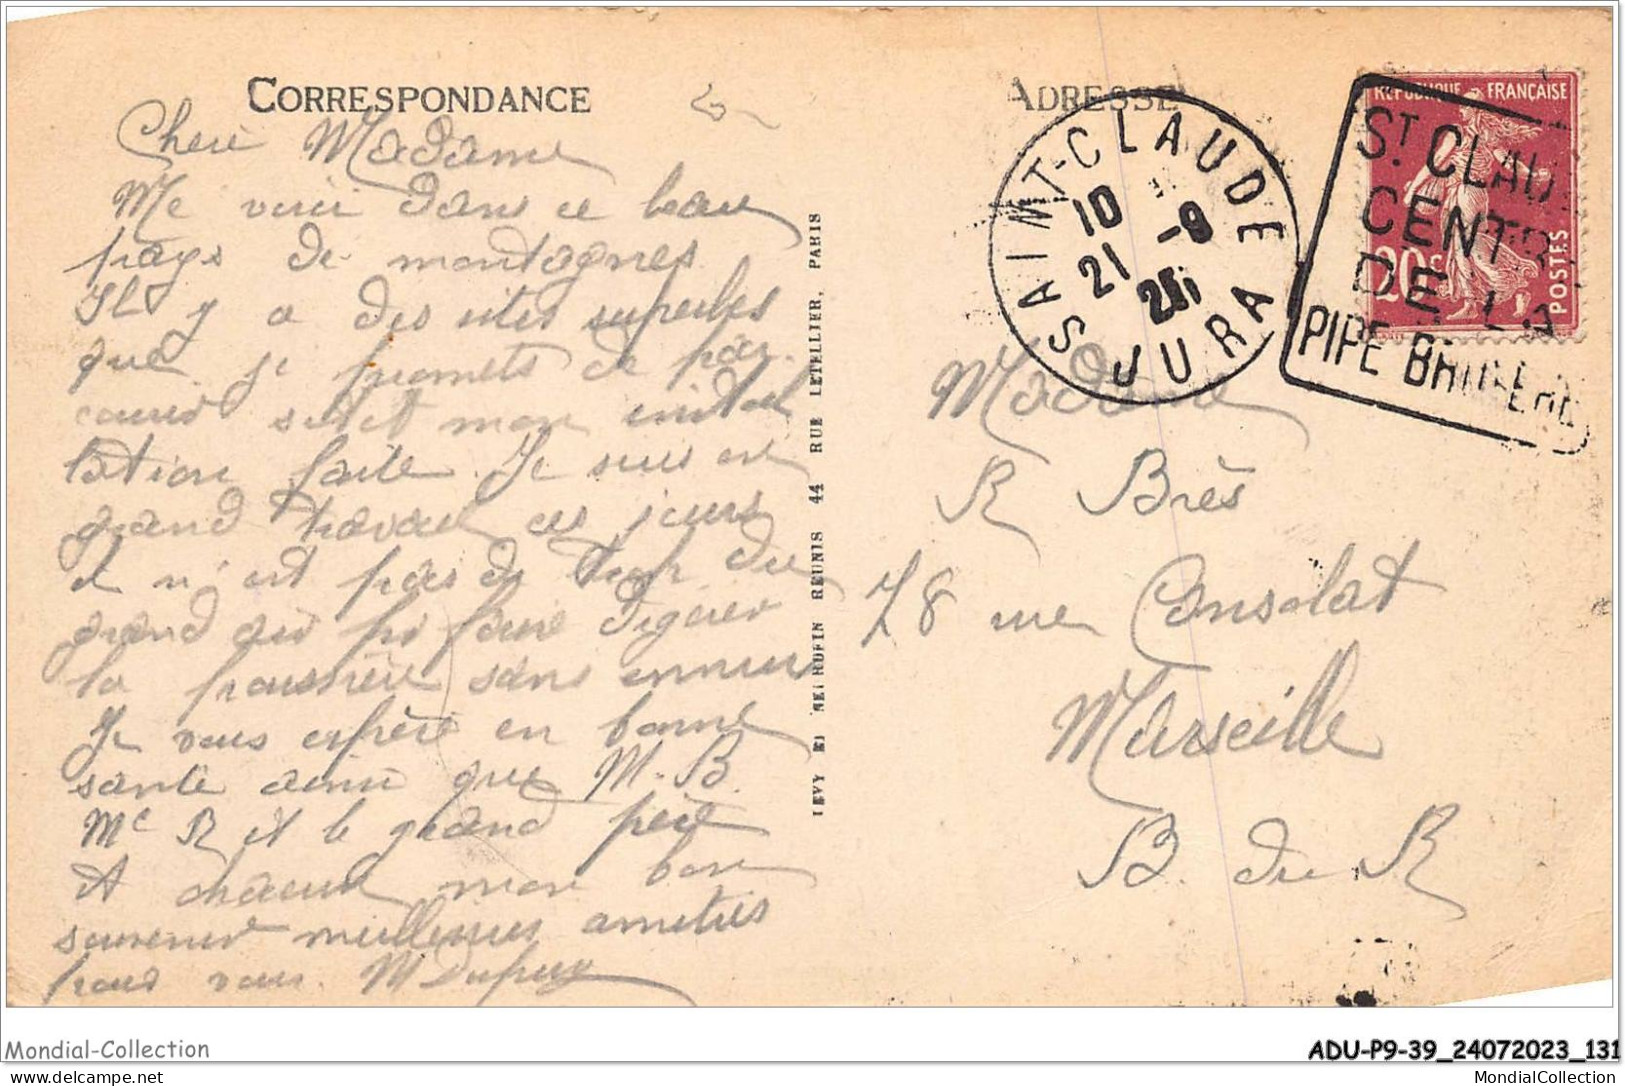 CORRESPONDANCE
Chère Madame
Me voici dans ce beau
pays de montagnes
Il y a des sites superbes
que je promets de par-
courir sitot mon instal
lation faite. Je suis en
grand travail ces jours
il n'est pas de trop du
grand air pr faire digérer
la poussière sans ennui
Je vous espère en bonne
sante ainsi que M. B.
Me R et le grand père
A chacun mon bon
souvenir meilleures amitiés
pour vous. M Dupuy
LEVY ET NEURDEIN REUNIS 44 RUE LETELLIER, PARIS
ADRESSE
SAINT-CLAUDE
10
21 -9
JURA
REPUBLIQUE FRANÇAISE
20c
POSTES
ST CLAUDE
CENTRE
DE LA
PIPE BRUYERE
Madame
R Brès
78 rue Consolat
Marseille
B. du R
Mondial-Collection
ADU-P9-39_24072023_131
delcampe.net
MondialCollection